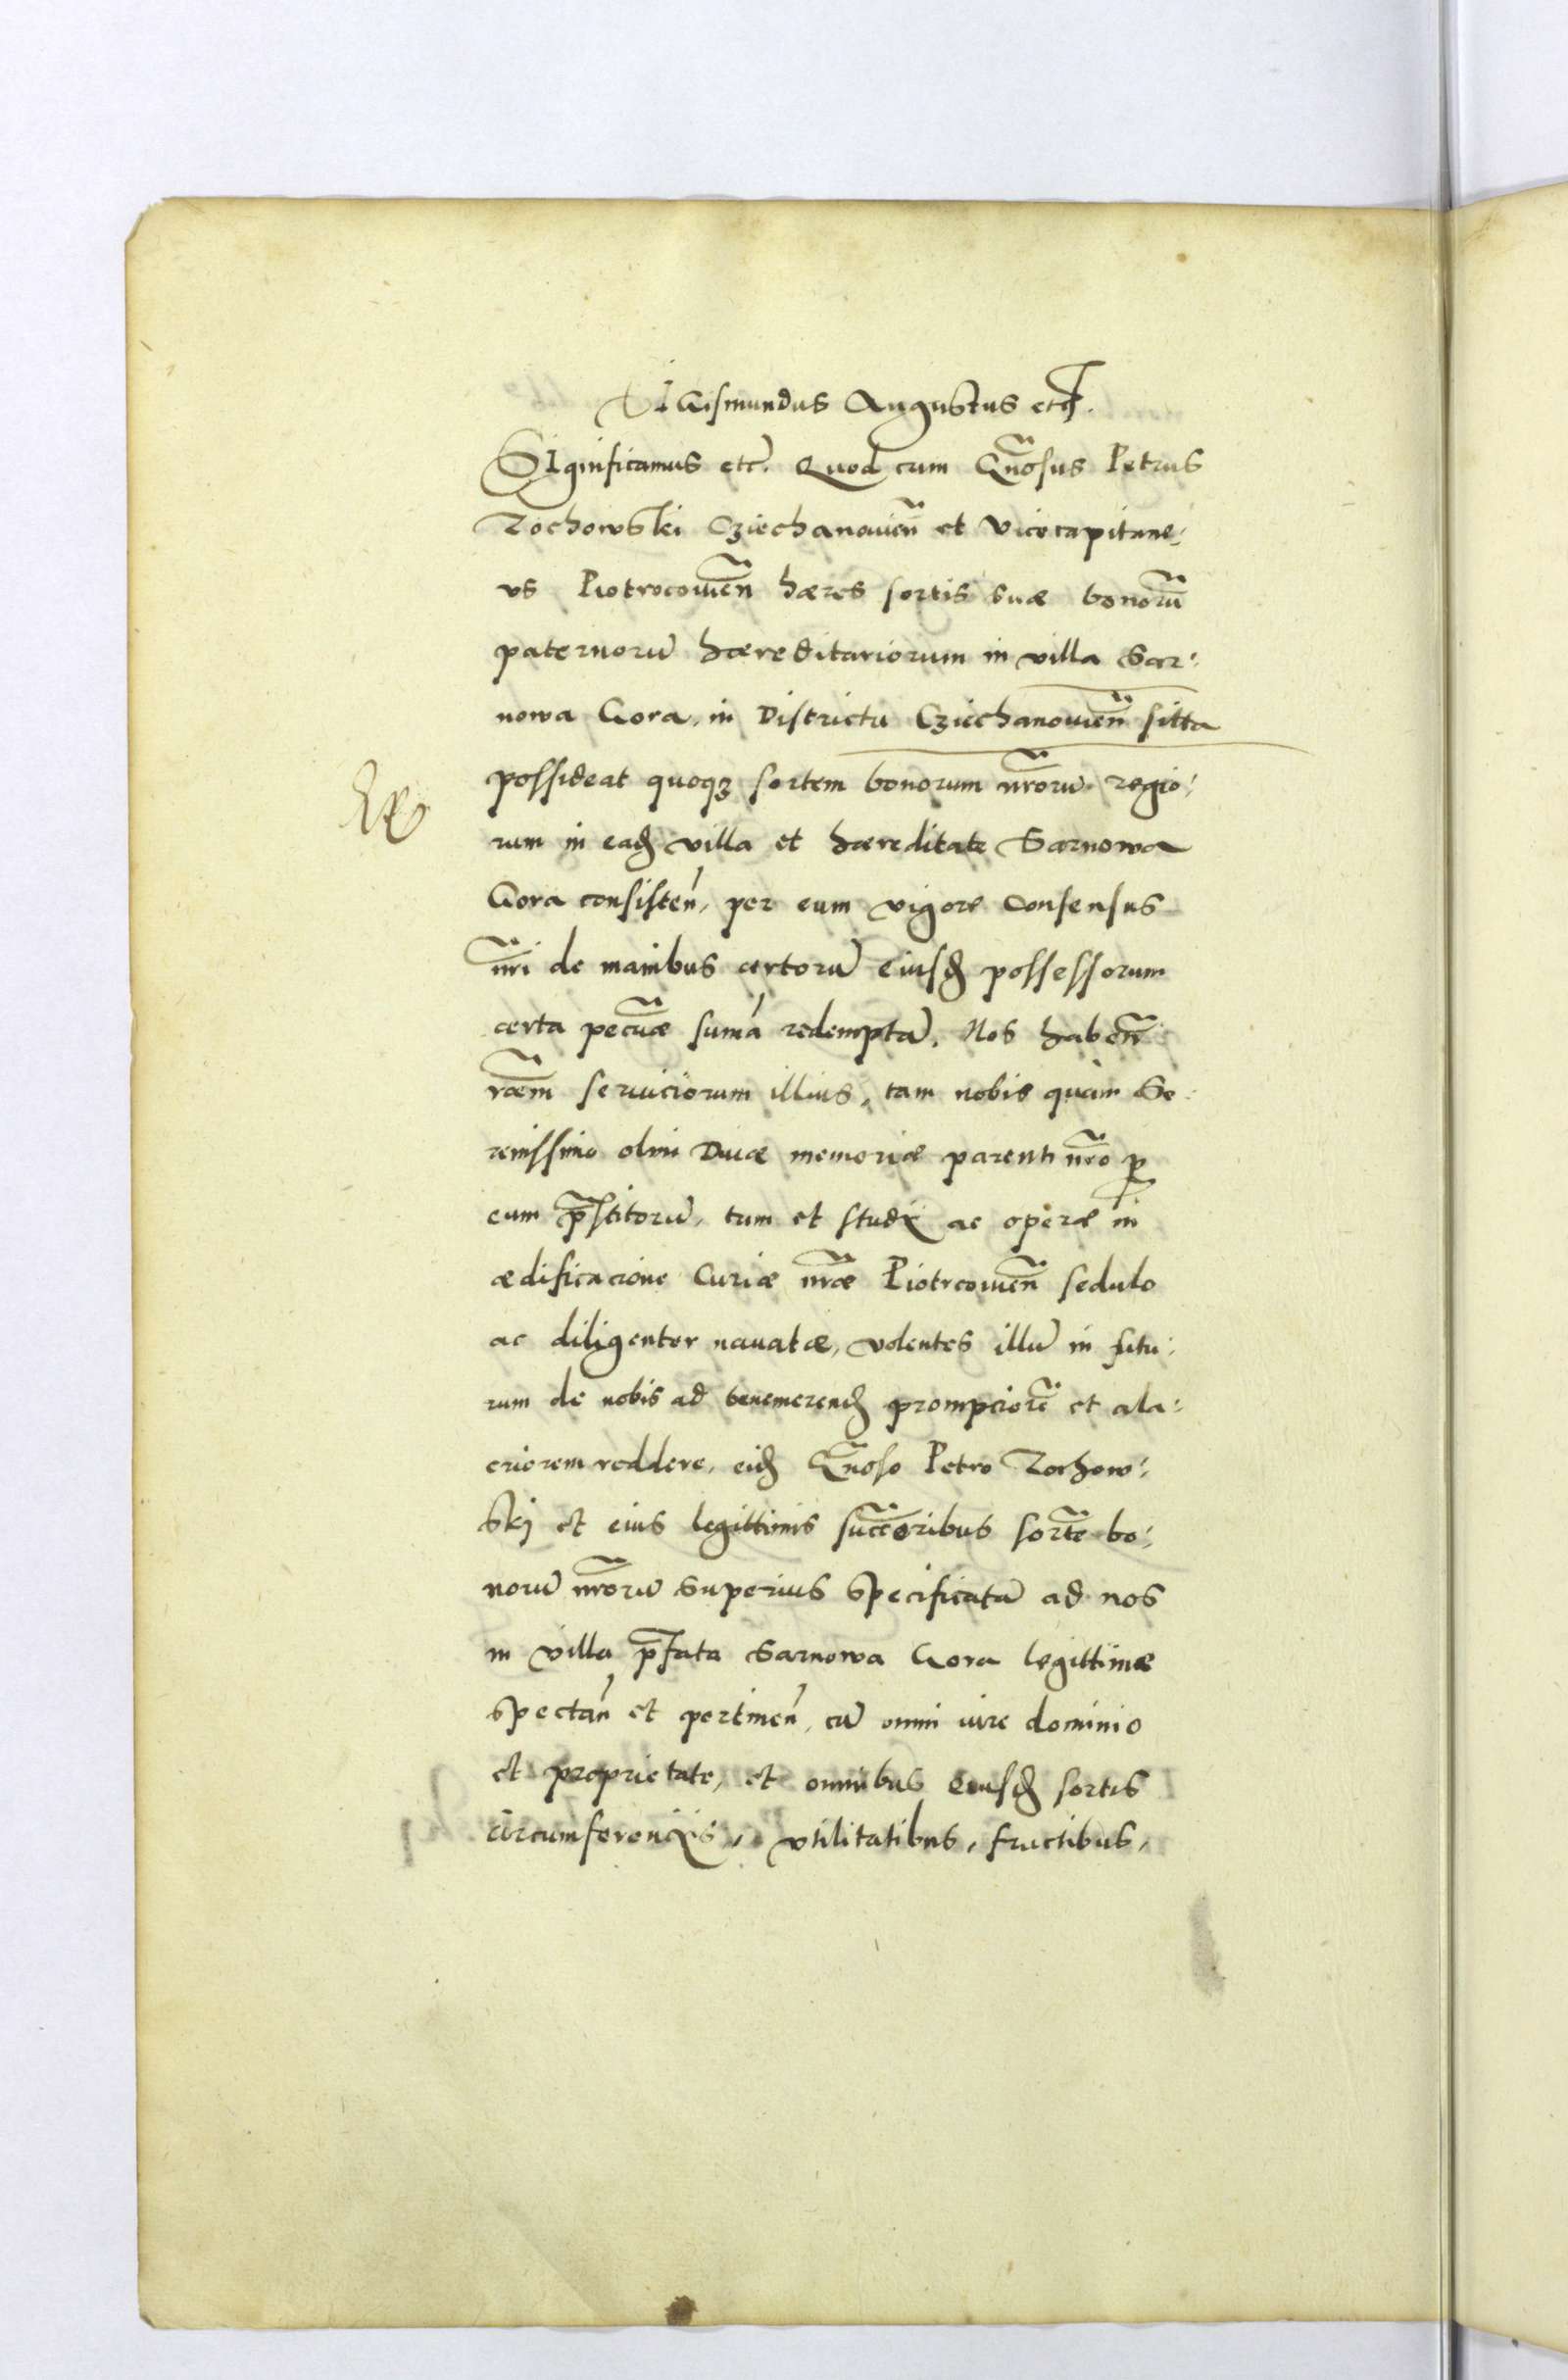 SIGismundus Augustus etc.
SIgnificamus etc̃. Quod cum Gñosus Petrus
Zochowski Cziechanouieñ et Vicecapitane⸗
us Piotrcouieñ hæres sortis suæ bonorũ
paternorũ hæreditariorum in villa Sar⸗
nowa Gora, in Districtu Cziechanouieñ sitta
possideat quoqꝫ sortem bonorum nr̃orũ regio⸗
rum in eaḍ villa et hæreditate Sarnowa
Gora consisteñ, per eum vigore Consensus
nr̃i de manibus certorũ eiusḍ possessorum
certa pecũæ sum̃a redemptã. Nos habeñ
rãem seruiciorum illius, tam nobis quàm Se⸗
renissimo olim Diuæ memoriæ parenti nr̃o ꝑ
eum p̃stitorũ, tum et studij ac operæ in
ædificacione Curiæ nr̃æ Piotrcouieñ sedulo
ac diligenter nauatæ, volentes illũ in futu⸗
rum de nobis ad benemerenḍ prompciorẽ et ala⸗
criorem reddere, eiḍ Gñoso Petro Zochow⸗
skj et eius legittimis succ̃oribus sortẽ bo⸗
norũ nr̃orũ superius specificatã ad nos
in villa p̃fata Sarnowa Gora legittimæ
spectañ et pertineñ, cũ omni iure dominio
et proprietate, et omnibus eiusḍ sortis
circumferencijs, vtilitatibus, fructibus,